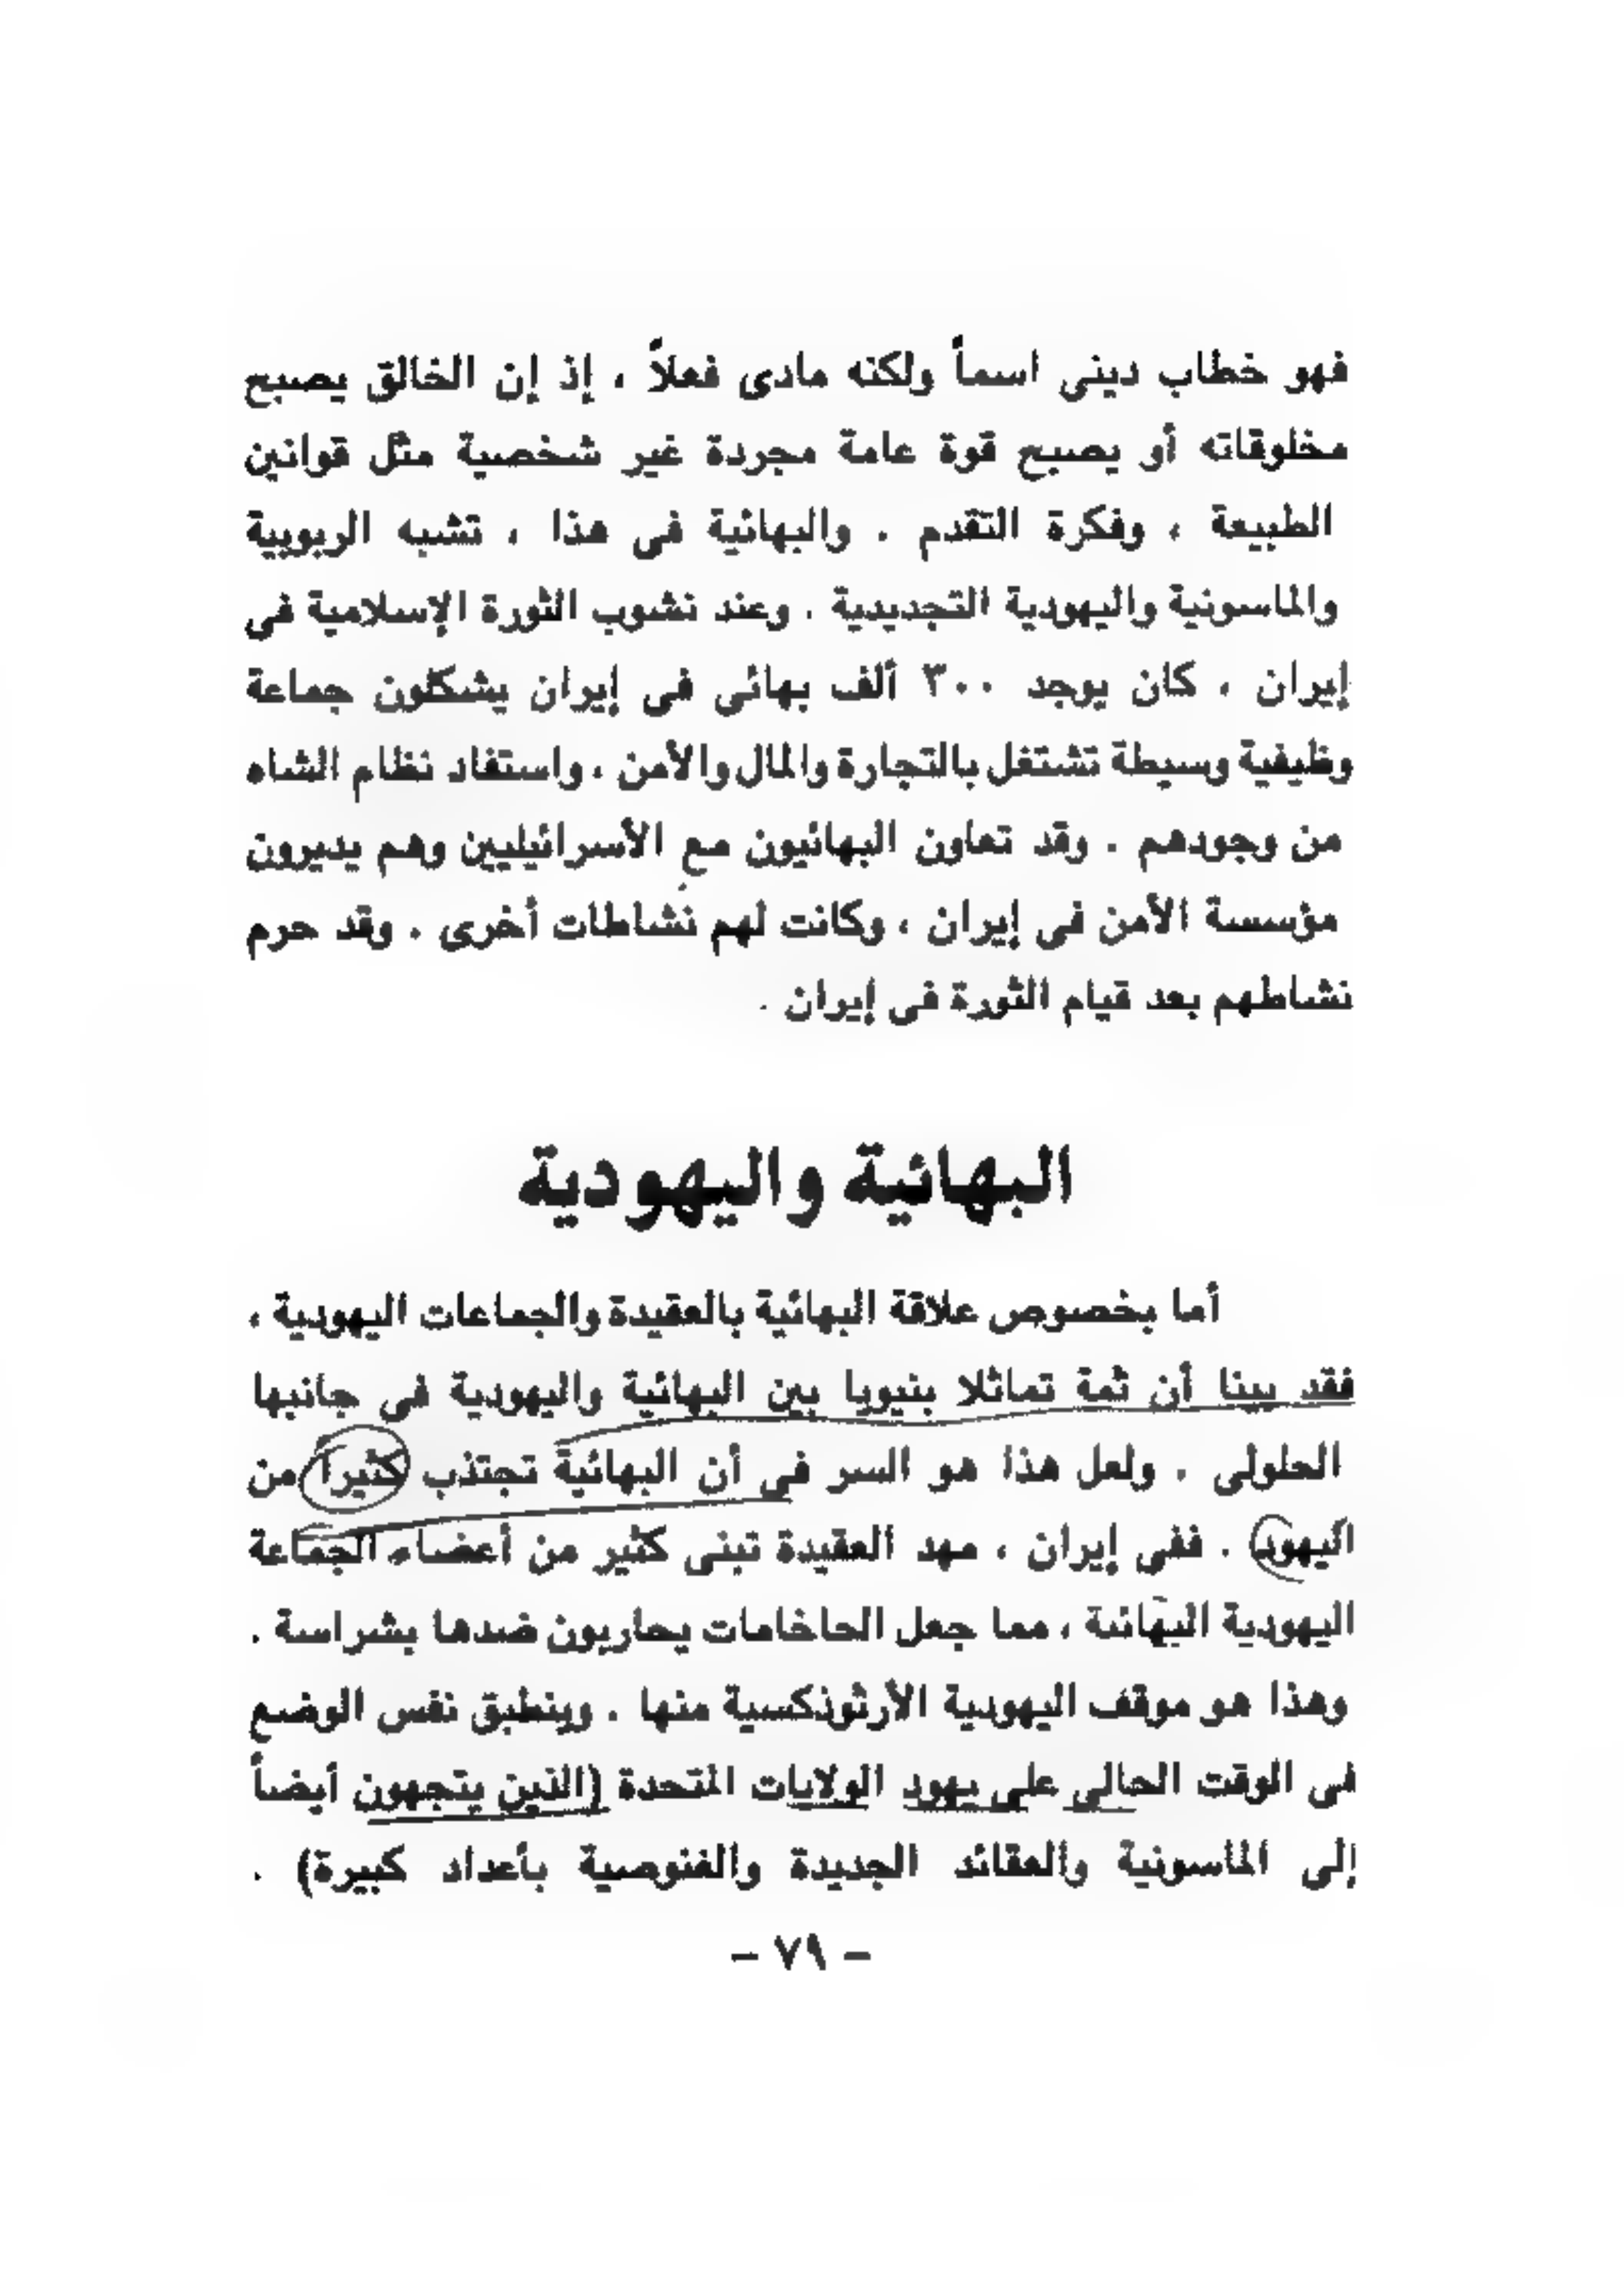 فهو خطاب دينى اسماً ولكنه مادى فعلاً ، إذ إن الخالق يصبح
مخلوقاته أو يصبح قوة عامة مجردة غير شخصية مثل قوانين
الطبيعة ، وفكرة التقدم . والبهائية فى هذا ، تشبه الربوبية
والماسونية واليهودية التجديدية . وعند نشوب الثورة الإسلامية فى
إيران ، كان يوجد ٣٠٠ ألف بهائى فى إيران يشكلون جماعة
وظيفية وسيطة تشتغل بالتجارة والمال والأمن ، واستفاد نظام الشاه
من وجودهم . وقد تعاون البهائيون مع الأسرائيليين وهم يديرون
مؤسسة الأمن فى إيران ، وكانت لهم نشاطات أخرى . وقد حرم
نشاطهم بعد قيام الثورة فى إيران .
البهائية واليهودية
أما بخصوص علاقة البهائية بالعقيدة والجماعات اليهودية ،
فقد بينا أن ثمة تماثلا بنيويا بين البهائية واليهودية فى جانبها
الحلولى . ولعل هذا هو السر فى أن البهائية تجتذب كثيرا من
اليهود . ففى إيران ، مهد العقيدة تبنى كثير من أعضاء الجماعة
اليهودية البهائية ، مما جعل الحاخامات يحاربون ضدها بشراسة .
وهذا هو موقف اليهودية الأرثوذكسية منها . وينطبق نفس الوضع
فى الوقت الحالى على يهود الولايات المتحدة (الذين يتجهون أيضاً
إلى الماسونية والعقائد الجديدة والغنوصية بأعداد كبيرة) .
– ٧٩ –